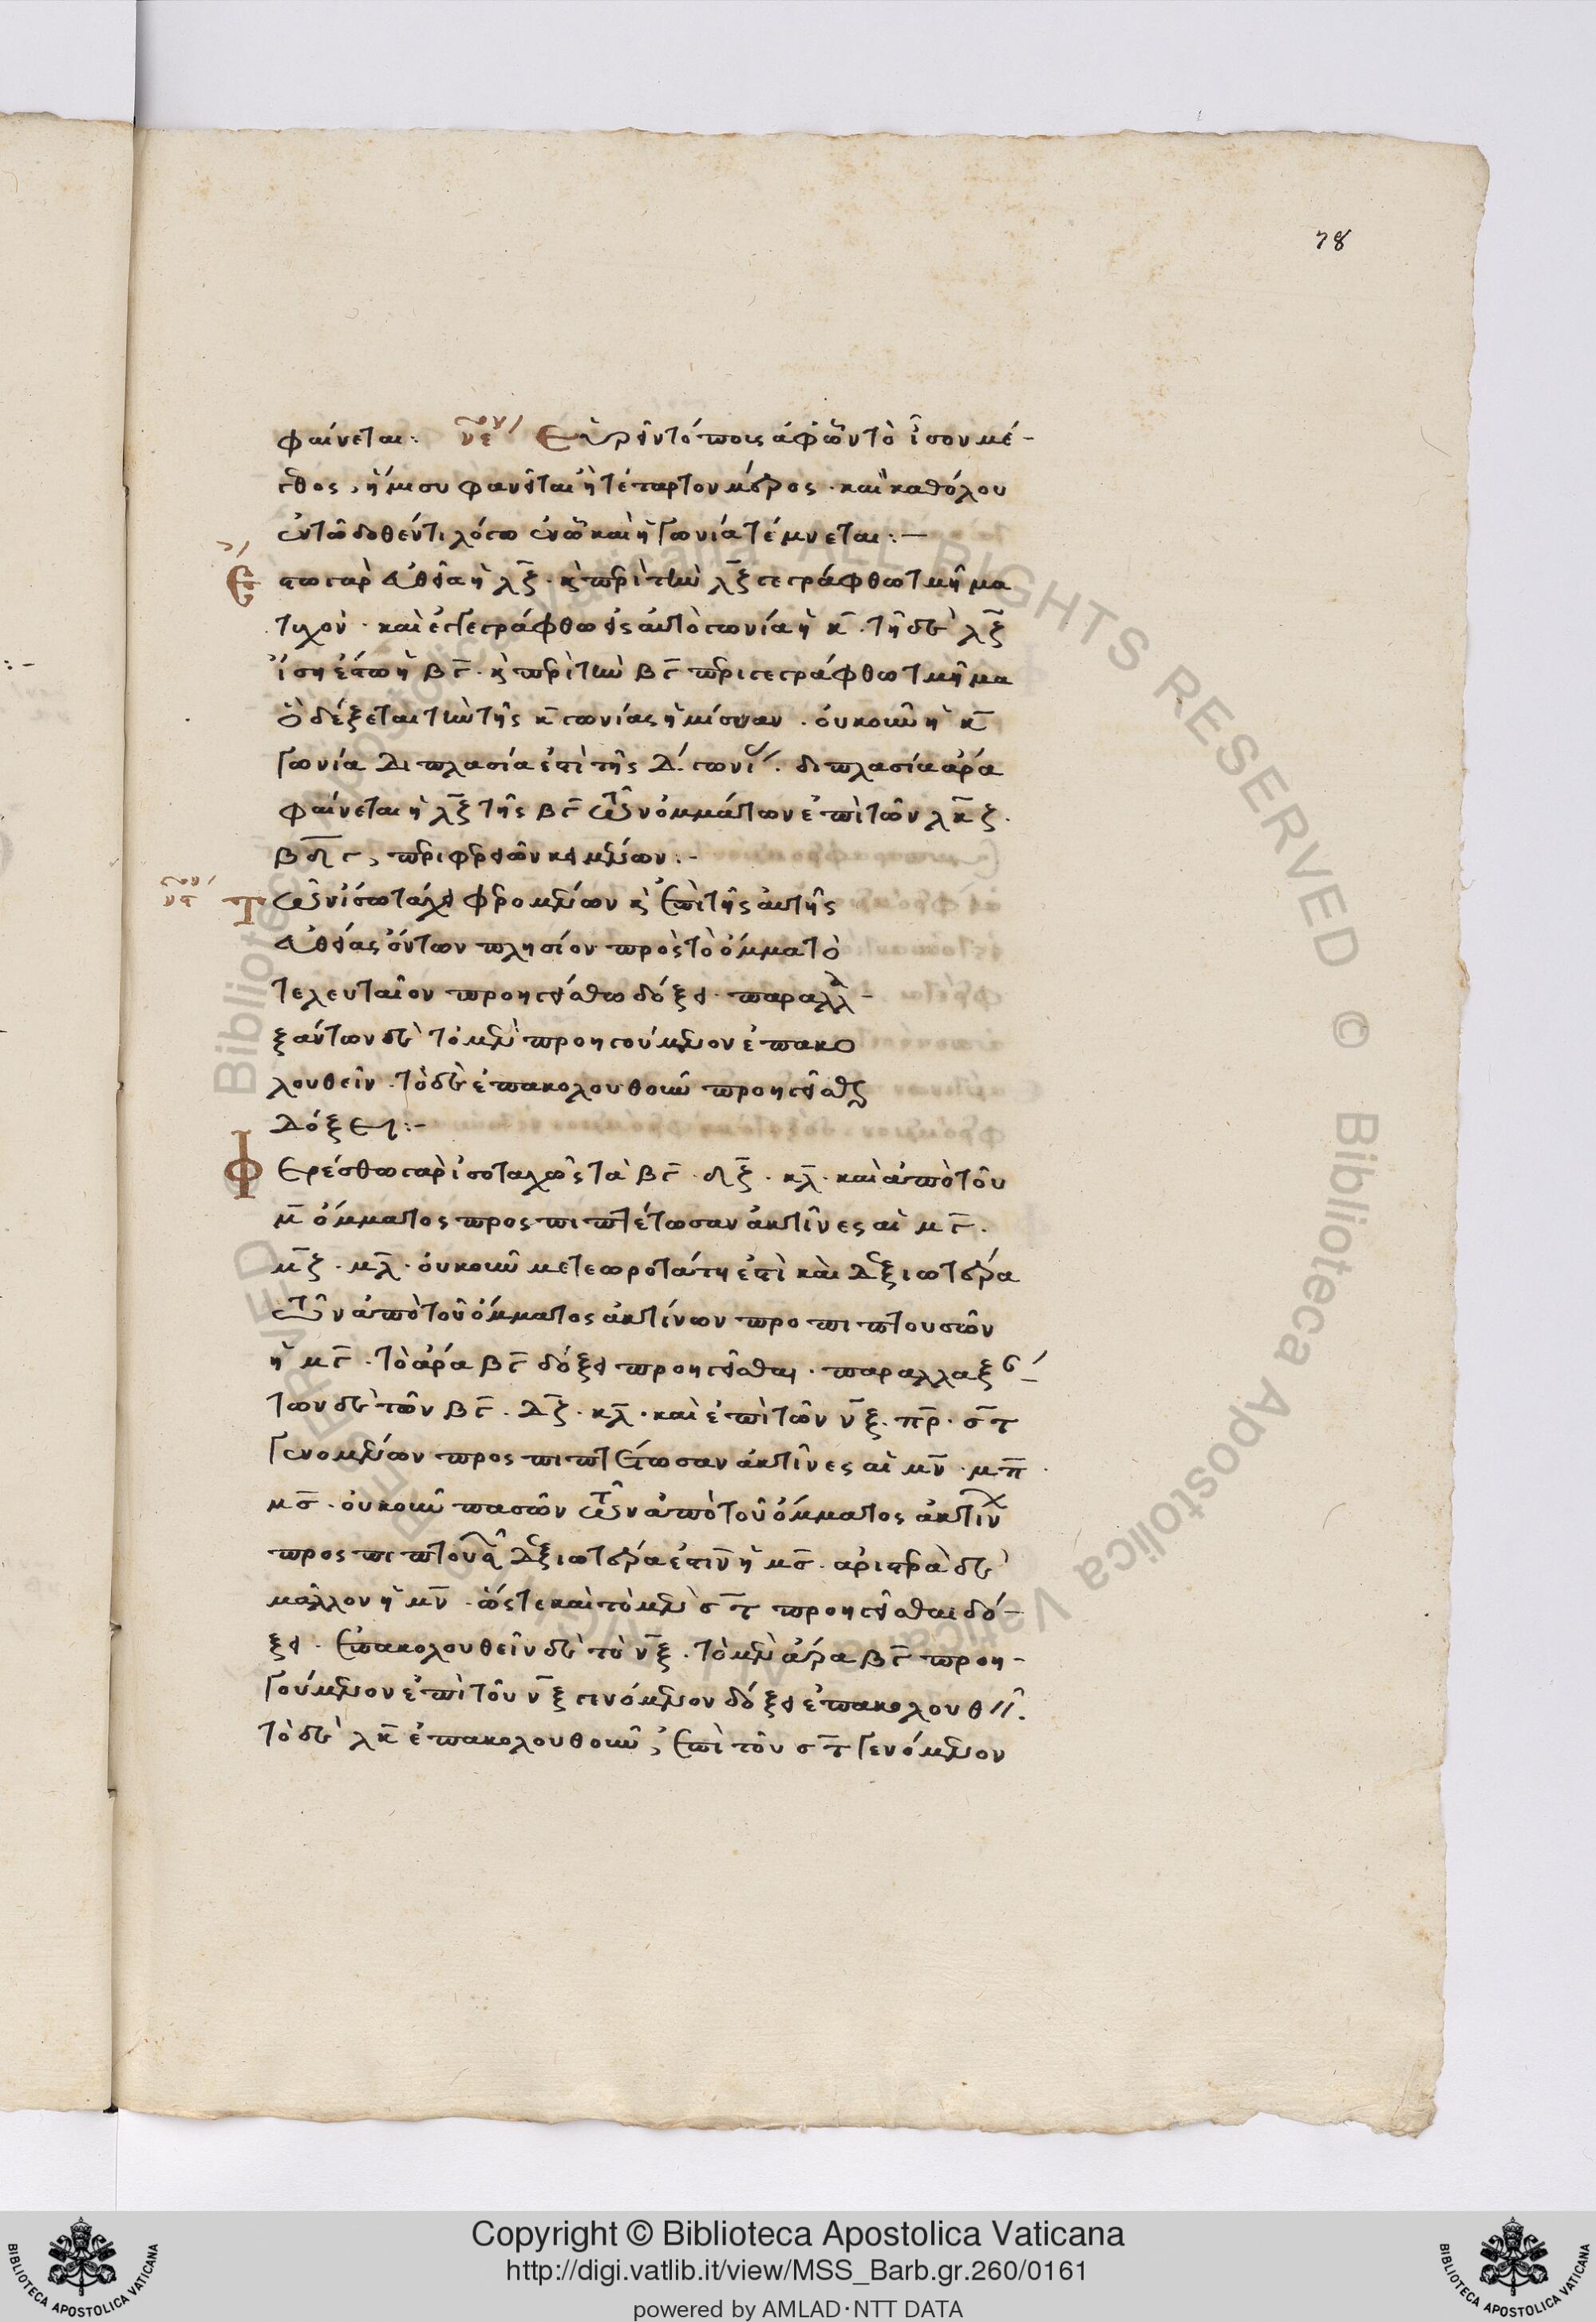 78
φαίνεται: νεον Εὑρεῖν τόποις ἀφ' ὧν τὸ ἴσον μέ-
γεθος, ἥμισυ φανεῖται ἢ τέταρτον μέρος. καὶ καθόλου
ἐν τῶ δοθέντι λόγω ἐν ὧ καὶ ἡ γωνία τέμνεται:-
Ἔστω γὰρ εὐθεῖα ἡ λξ. κ περὶ τὴν λξ γεγράφθω τμῆμα
τυχόν. καὶ ἐγγεγράφθω εἰς αὐτὸ γωνία ἡ κ. τῆ δὲ λξ
ἴση ἔστω ἡ βγ. κ περὶ τὴν βγ περιγεγράφθω τμῆμα
ὃ δέξεται τὴν τῆς κ γωνίας ἡμίσειαν. οὐκοῦν ἡ κ
γωνία διπλασία ἐστὶ τῆς Δ. γωνί. διπλασία ἄρα
φαίνεται ἡ λξ τῆς βγ τῶν ὀμμάτων ἐπὶ τῶν λκζ.
βδγ, περιφερειῶν κειμένων:-
νς Τῶν ἰσωταχεῖ φερομένων κ ἐπὶ τῆς αὐτῆς
εὐθείας ὄντων πλησίον πρὸς τὸ ὄμμα τὸ
τελευταῖον προηγεῖσθω δόξει. παραλλα-
ξάντων δὲ τὸ μὲν προηγούμενον ἐπακο
λουθεῖν. τὸ δὲ ἐπακολουθοῦν προηγεῖσθαι
Δόξει:-
Φερέσθω γὰρ ἰσοταχῶς τὰ βγ. δξ. κλ. καὶ ἀπὸ τοῦ
μ ὄμματος προσπιπτέτωσαν ἀκτῖνες αἱ μγ.
μζ. μλ. οὐκοῦν μετεωροτάτη ἐστὶ καὶ Δεξιωτέρα
τῶν ἀπὸ τοῦ ὄμματος ἀκτίνων προπιπτουσῶν
ἡ μγ. τὸ ἄρα βγ δόξει προηγεῖσθαι. παραλλαξάν-
των δὲ τῶν βγ. Δζ. κλ. καὶ ἐπὶ τῶν νξ. πρ. στ
γενομένων προσπιπτέτωσαν ἀκτῖνες αἱ μν. μπ.
μσ. οὐκοῦν πασῶν τῶν ἀπὸ τοῦ ὄμματος ἀκτίν
προσπιπτουσῶν Δεξιωτέρα ἐστὶν ἡ μσ. ἀριστερὰ δὲ
μᾶλλον ἡ μν. ὥστε καὶ τὸ μὲν στ προηγεῖσθαι δό-
ξει. ἐπακολουθεῖν δὲ τὸ νξ. τὸ μὲν ἄρα βγ προη-
γούμενον ἐπὶ τοῦ νξ γινόμενον δόξει ἐπακολουθεῖν.
τὸ δὲ λκ ἐπακολουθοῦν, ἐπὶ τοῦ στ γενόμενον
Copyright © Biblioteca Apostolica Vaticana
http://digi.vatlib.it/view/MSS_Barb.gr.260/0161
powered by AMLAD·NTT DATA
BIBLIOTECA APOSTOLICA VATICANA
BIBLIOTECA APOSTOLICA VATICANA